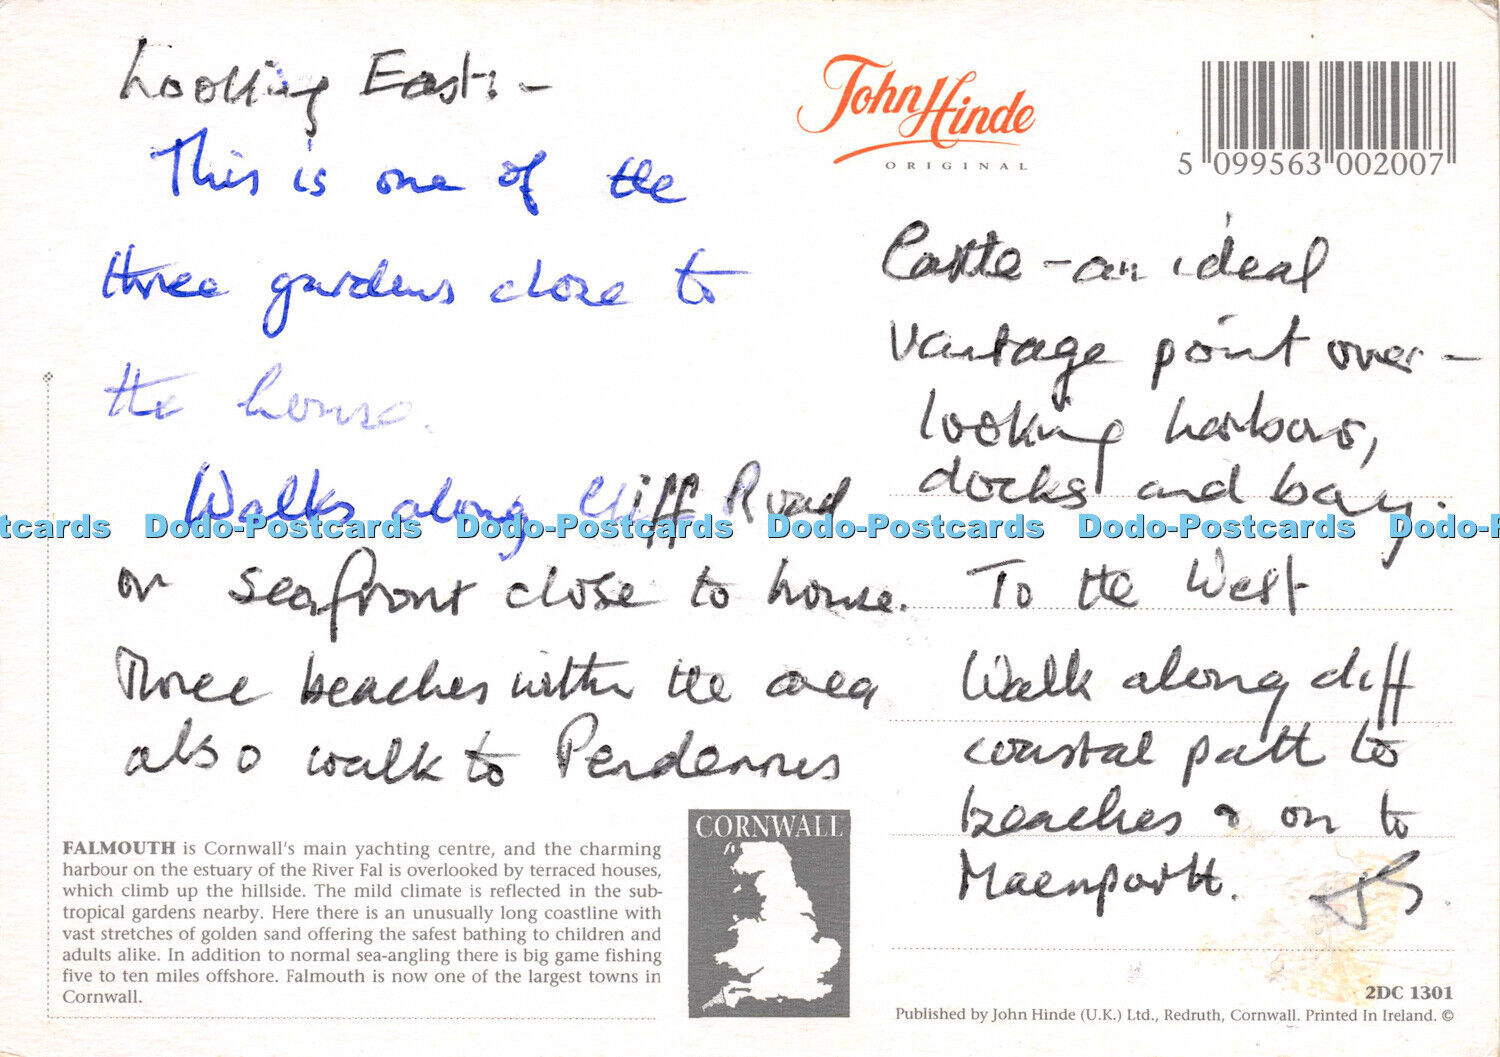 Looking East:-
This is one of the
three gardens close to
the house.
Walks along Cliff Road
or seafront close to house.
Three beaches within the area
also walk to Pendennis
Castle - an ideal
vantage point over-
looking harbour,
docks and bay.
To the West
Walk along cliff
coastal path to
beaches & on to
Maenporth.
John Hinde
ORIGINAL
5 099563 002007
FALMOUTH is Cornwall's main yachting centre, and the charming
harbour on the estuary of the River Fal is overlooked by terraced houses,
which climb up the hillside. The mild climate is reflected in the sub-
tropical gardens nearby. Here there is an unusually long coastline with
vast stretches of golden sand offering the safest bathing to children and
adults alike. In addition to normal sea-angling there is big game fishing
five to ten miles offshore. Falmouth is now one of the largest towns in
Cornwall.
CORNWALL
2DC 1301
Published by John Hinde (U.K.) Ltd., Redruth, Cornwall. Printed In Ireland. ©
tcards Dodo-Postcards Dodo-Postcards Dodo-Postcards Dodo-Postcards Dodo-P